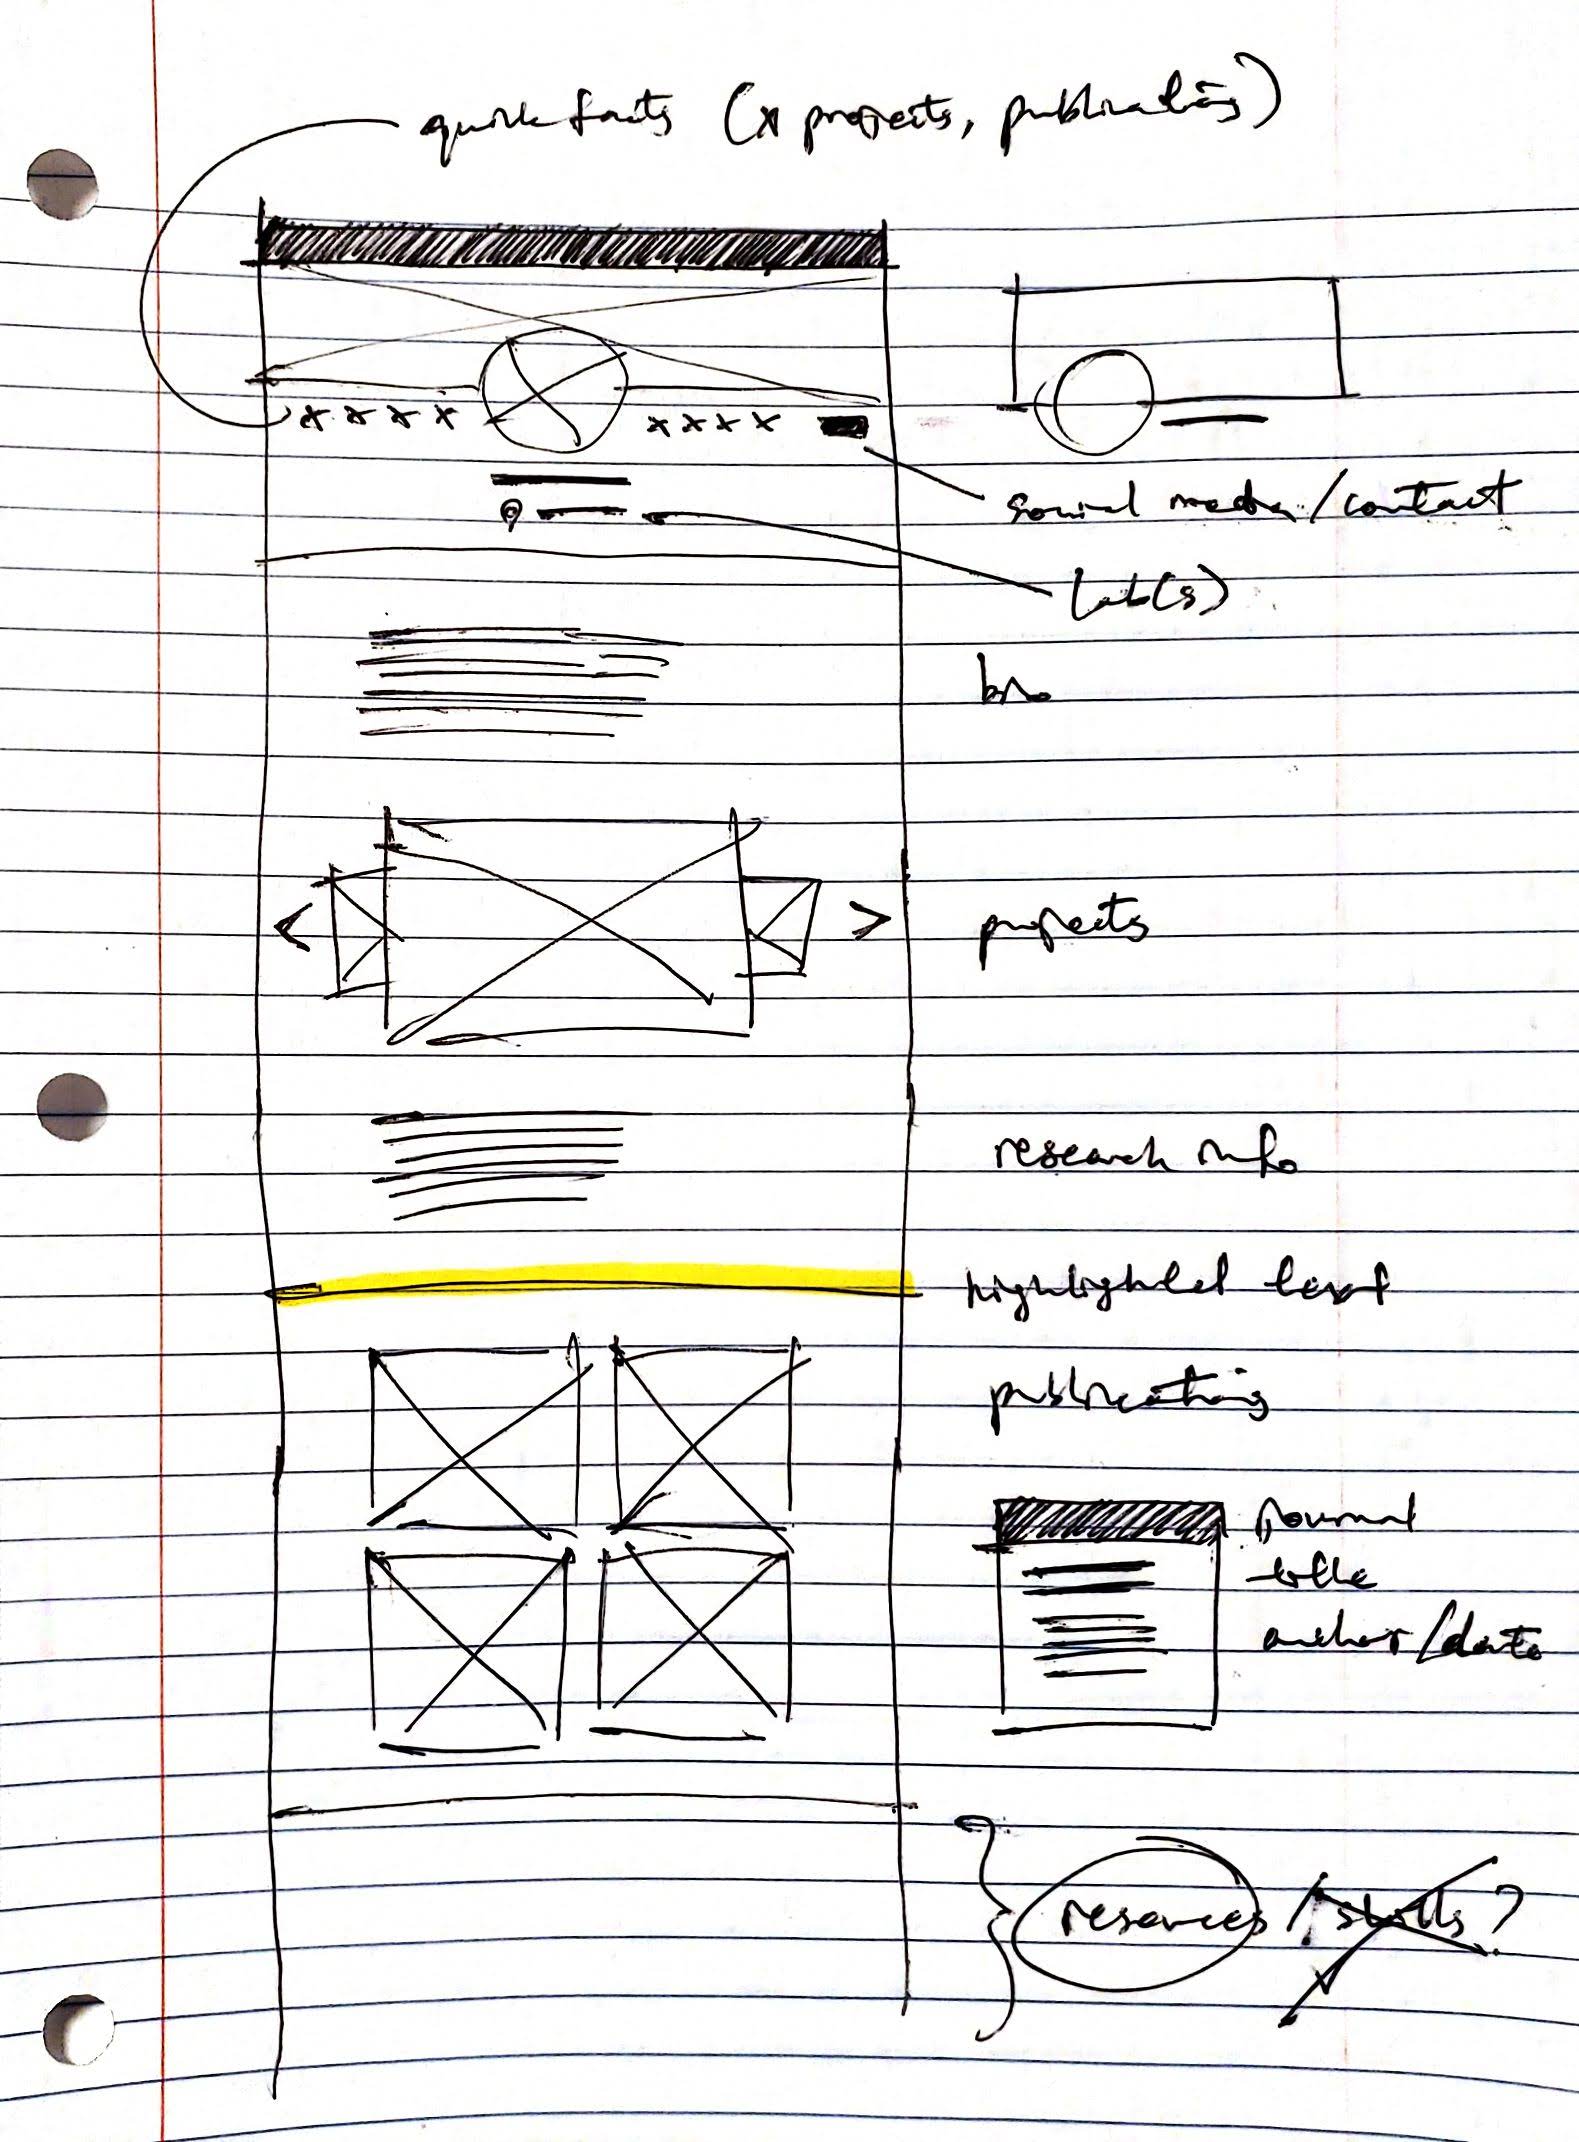 quick facts (x projects, publications)
x x x x
x x x x
social media/contact
lab(s)
bio
< >
projects
research info
highlighted text
publications
journal
title
author/date
resources / skills?